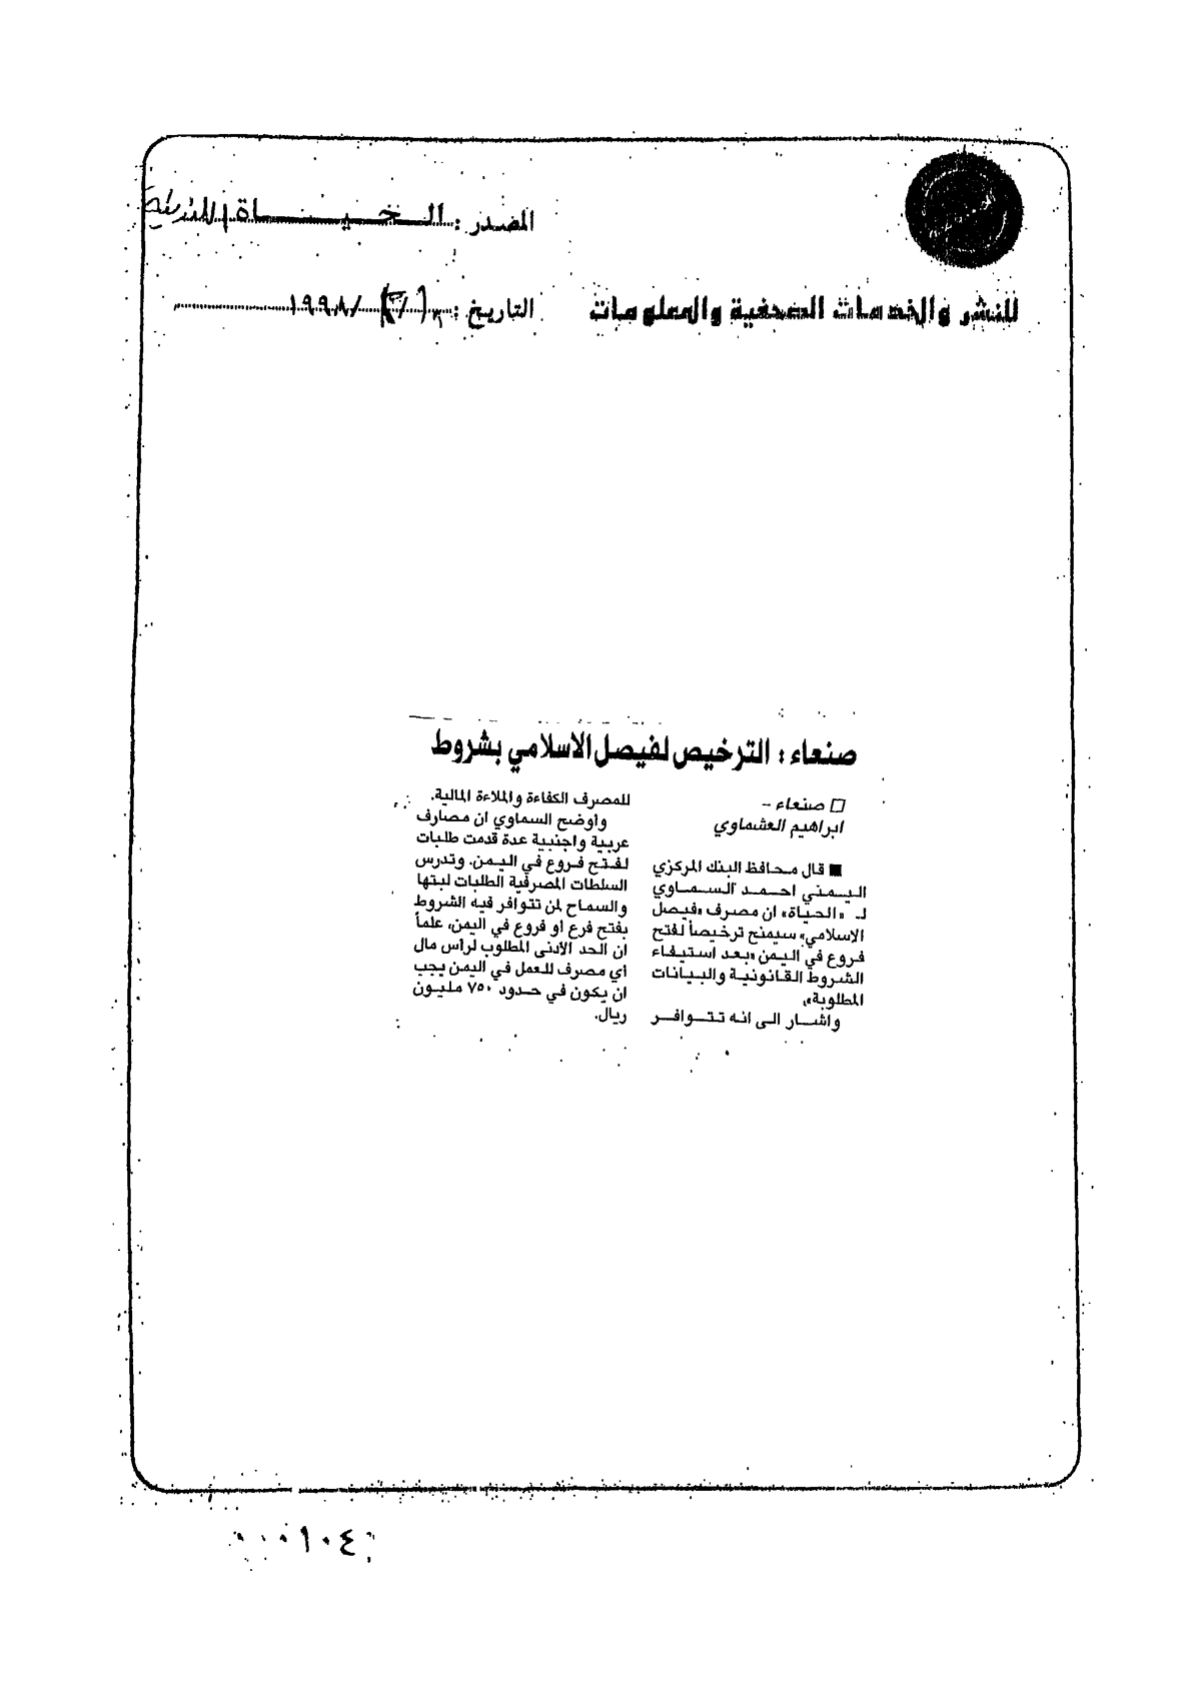 المصدر : الحياة اللندنية
للنشر والخدمات الصحفية والمعلومات
التاريخ : /١٩٩٨
صنعاء : الترخيص لفيصل الاسلامي بشروط
□ صنعاء -
ابراهيم العشماوي
■ قال محافظ البنك المركزي
اليمني احمد السماوي
لـ «الحياة» ان مصرف «فيصل
الاسلامي» سيمنح ترخيصاً لفتح
فروع في اليمن «بعد استيفاء
الشروط القانونية والبيانات
المطلوبة».
واشار الى انه تتوافر
للمصرف الكفاءة والملاءة المالية.
وأوضح السماوي ان مصارف
عربية واجنبية عدة قدمت طلبات
لفتح فروع في اليمن. وتدرس
السلطات المصرفية الطلبات لبتها
والسماح لمن تتوافر فيه الشروط
بفتح فرع او فروع في اليمن، علماً
ان الحد الأدنى المطلوب لرأس مال
اي مصرف للعمل في اليمن يجب
ان يكون في حدود ٧٥٠ مليون
ريال.